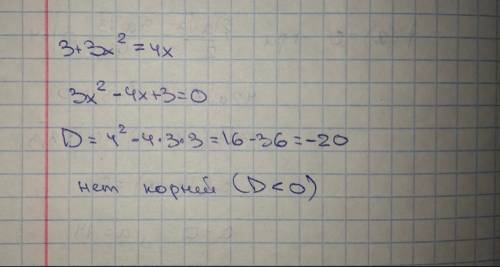 3+3x² = 4x
3x² - 4x+3=0
D = 4² - 4·3·3 = 16 - 36 = -20
нет корней (D < 0)